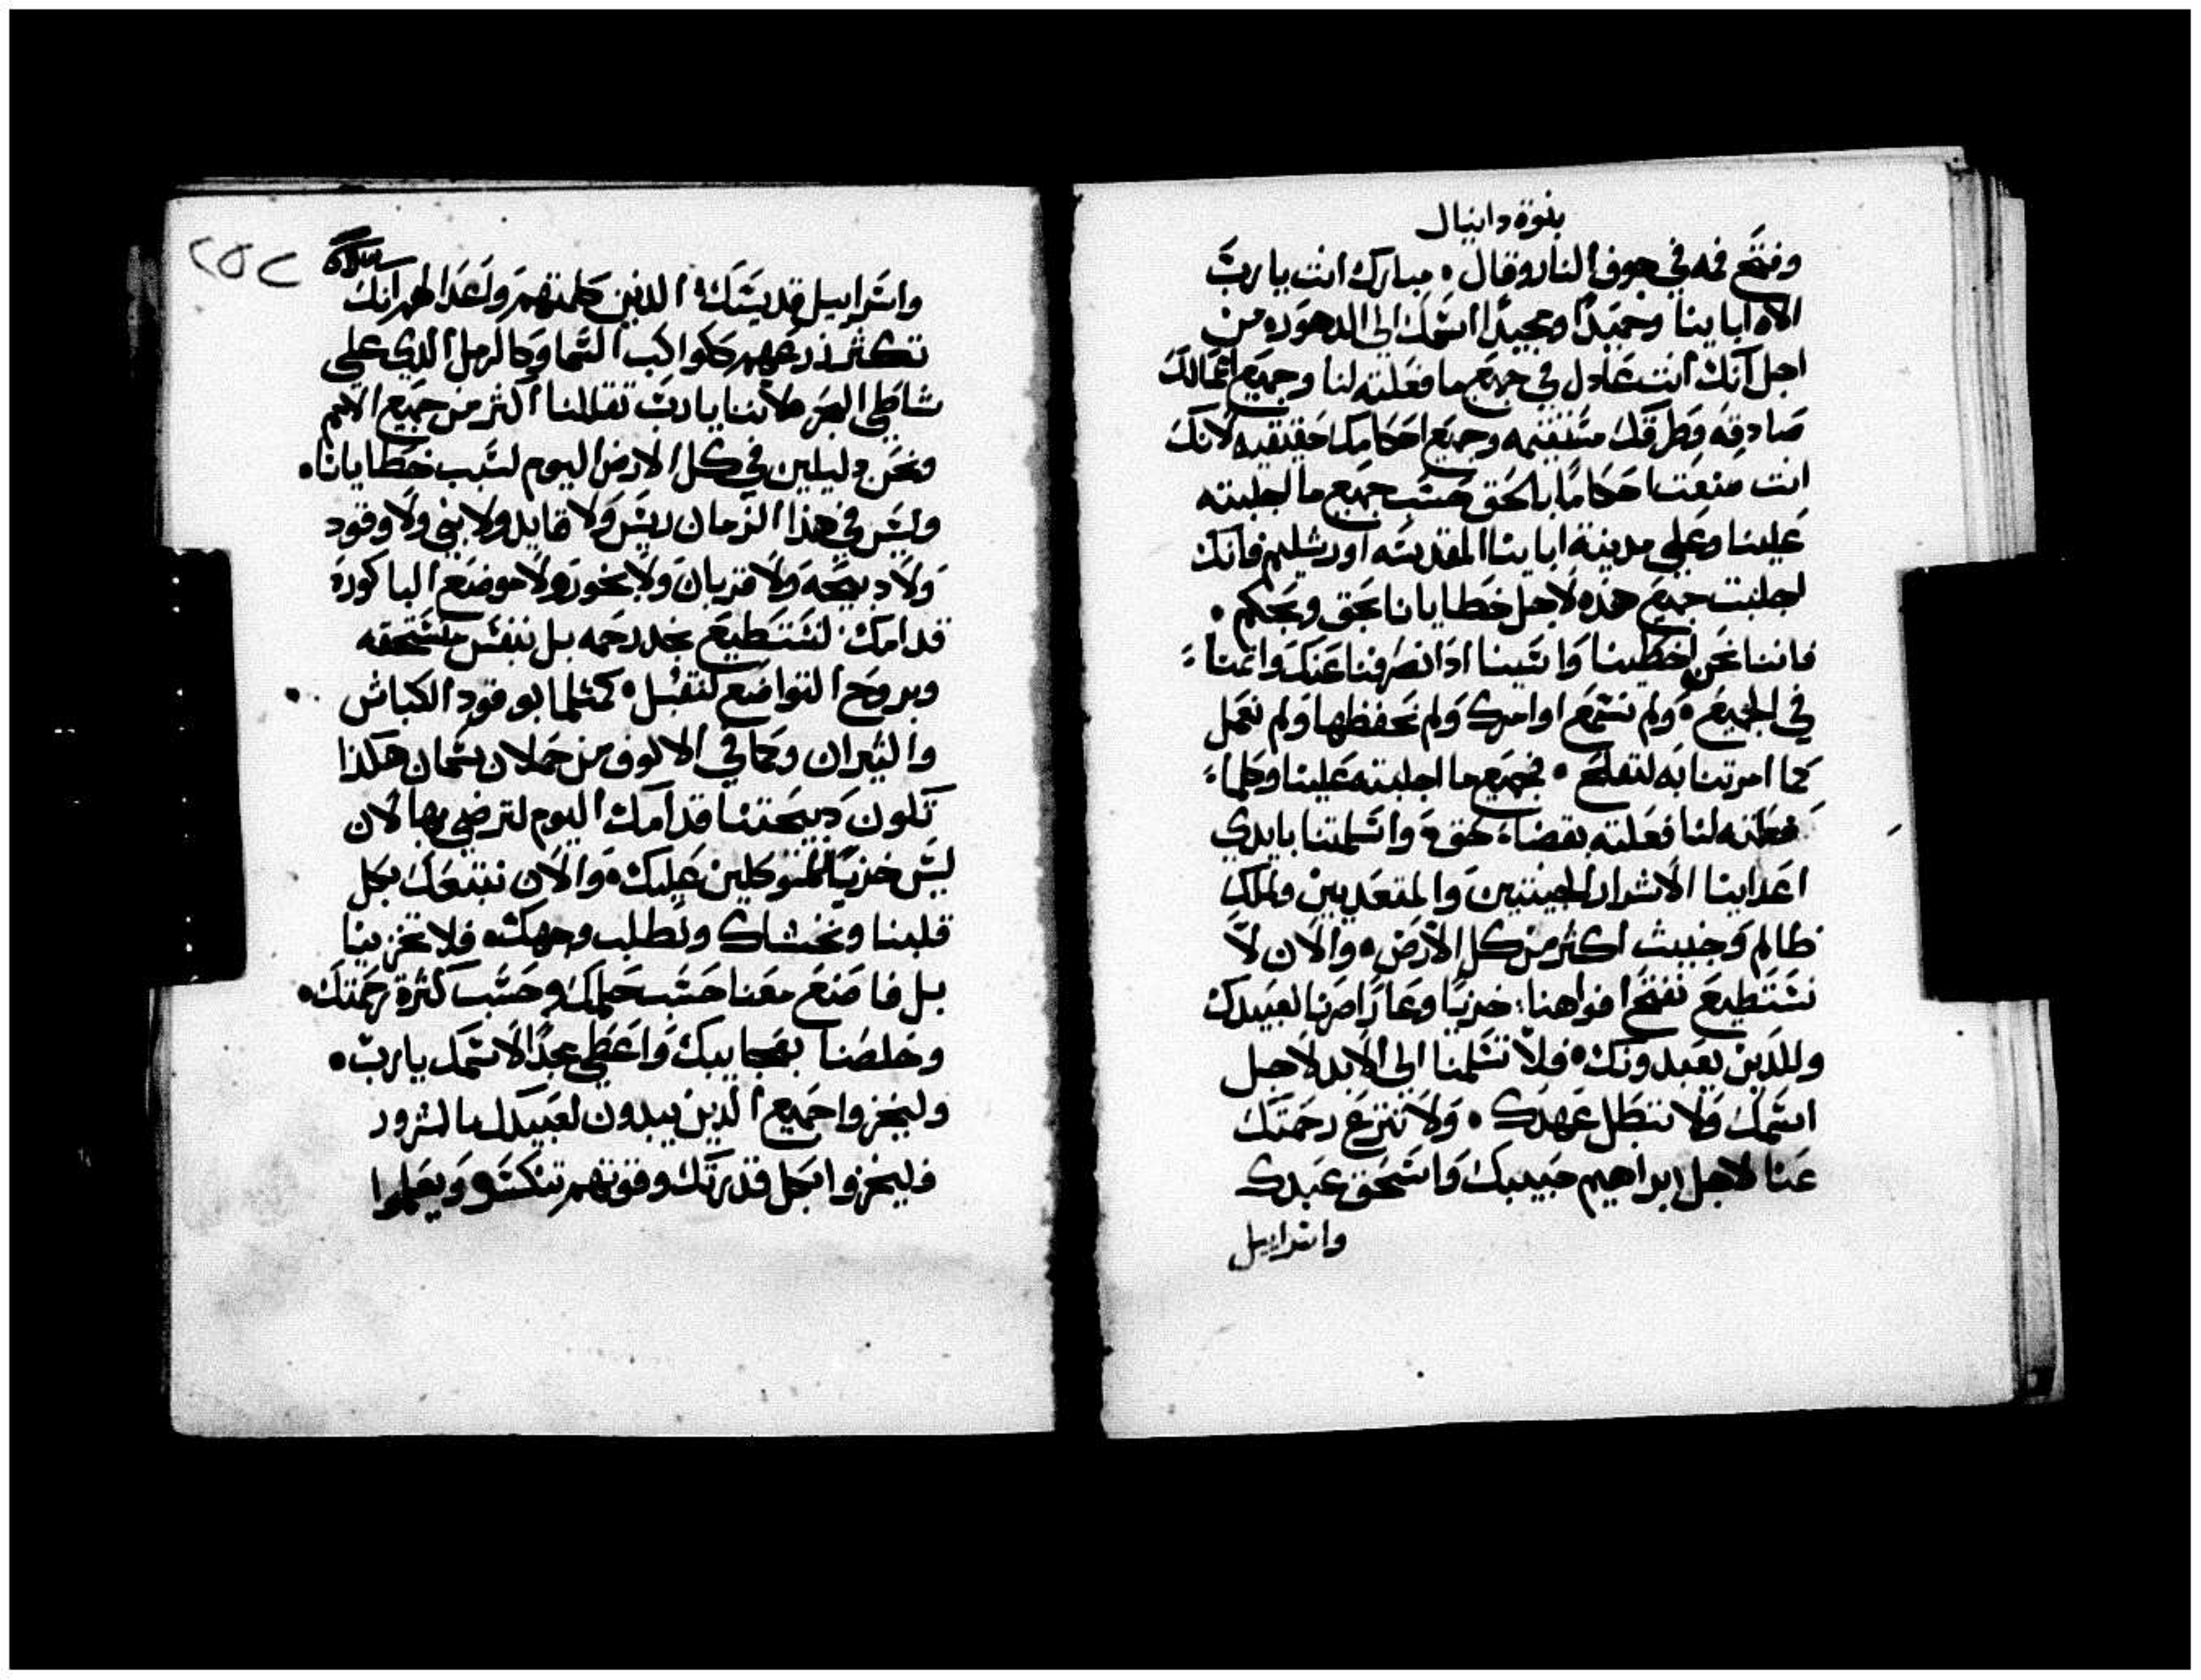 بنوة دانيال
وفتح فمه في جوف النار وقال • مبارك انت يا رب
الاه اباينا وحميدًا ومجيدًا اسمك الي الدهور • من
اجل انك انت عادل في جميع ما فعلته لنا وجميع اعمالك
صادقه وطرقك مستقيمه وجميع احكامك حقيقيه لانك
انت صنعت احكامًا بالحق حسب جميع ما اجلبته
علينا وعلي مدينة اباينا المقدسه اورشليم فانك
اجلبت جميع هذه لاجل خطايانا بحق وبحكم •
فاننا نحن اخطينا واسينا اذ انصرفنا عنك واثمنا
في الجميع • ولم نسمع اوامرك ولم نحفظها ولم نعمل
كما امرتنا به لنفلح • فجميع ما اجلبته علينا وكلما
فعلته لنا فعلته بقضاء حق • واسلمتنا بايدي
اعداينا الاشرار المتعديين وملك
ظالم وخبيث اكثر من كل الارض • والان لا
نستطيع نفتح افواهنا خزيًا وعارًا صرنا لعبيدك
وللذين يعبدونك • فلا تسلمنا الي الابد لاجل
اسمك ولا تبطل عهدك • ولا تنزع رحمتك
عنا لاجل ابراهيم حبيبك واسحق عبدك
واسراييل
٢٥٢
واسراييل قديسك • الذين كلمتهم واعدا لهم انك
تكثر زرعهم ككواكب السما وكالرمل الذي علي
شاطي البحر • لاننا يا رب تقاللنا اكثر من جميع الامم
ونحن دليلين في كل الارض اليوم لسبب خطايانا •
وليس في هذا الزمان ريس ولا قايد ولا نبي ولا وقود
ولا دبيحه ولا قربان ولا بخور ولا موضع الباكورة
قدامك لنستطيع نجد رحمه بل بنفس منسحقه
وبروح التواضع لنقبل • كمثلما بوقود الكباش
والثيران وكما في الالوف من حملان سمان هكذا
تكون دبيحتنا قدامك اليوم لترضي بها لان
ليس خزيًا للمتوكلين عليك • والان نتبعك بكل
قلبنا ونخشاك ونطلب وجهك • فلا تخزينا
بل فاصنع معنا حسب حلمك وحسب كثرة رحمتك •
وخلصنا بعجايبك واعطي مجدًا لاسمك يا رب •
وليخزوا جميع الذين يبدون لعبيدك بالشرور
وليخزوا بكل قدرتك وقوتهم تنكسر ويعلموا